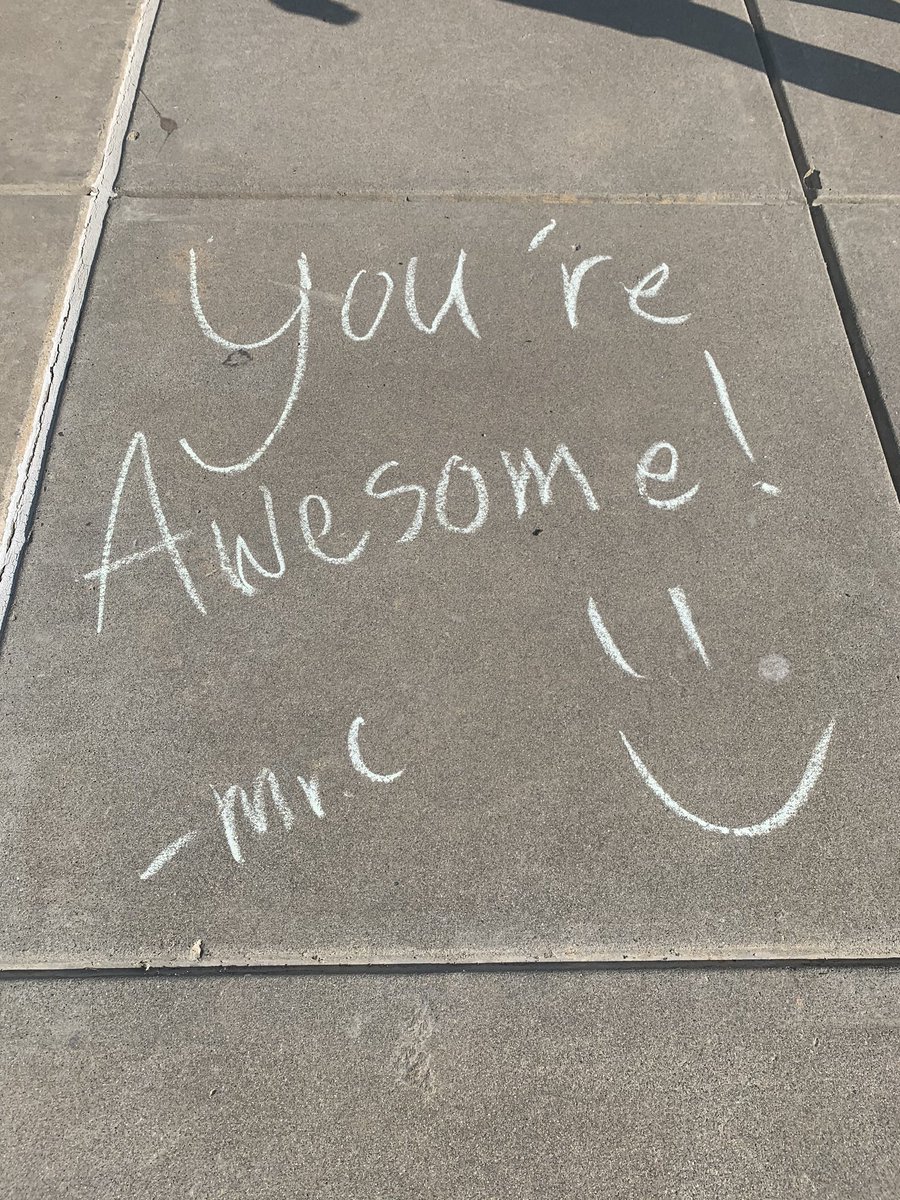 you're
Awesome!
-Mr C